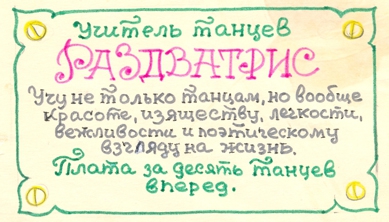 Учитель танцев
РАЗДВАТРИС
Учу не только танцам, но вообще
красоте, изяществу, легкости,
вежливости и поэтическому
взгляду на жизнь.
Плата за десять танцев
вперед.